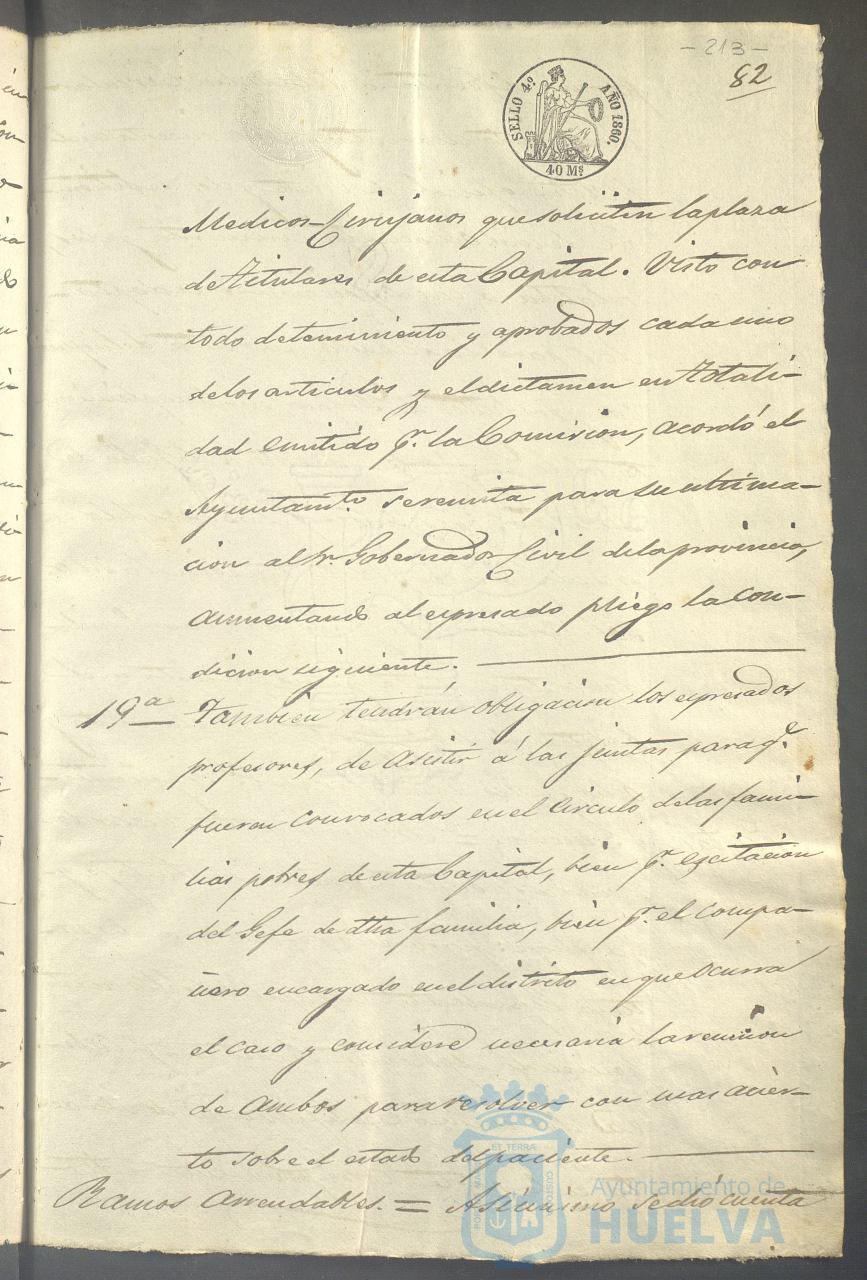 - 213 -
82
SELLO 4º AÑO 1860.
40 Ms
Medicos-Cirujanos que soliciten la plaza
de Titulares de esta Capital. Visto con
todo detenimiento y aprobados cada uno
de los articulos y el dictamen en Totali-
dad emitido pr. la Comision, acordó el
Ayuntamto. se remita para su ultima-
cion al Sr. Gobernador Civil de la provincia,
aumentando al espresado pliego la con-
dicion siguiente.
19ª Tambien tendrán obligacion los espresados
profesores, de asistir á las juntas para qe.
fueren convocados en el circulo de las fami-
lias pobres de esta Capital, bien pr. escitacion
del Gefe de dha familia, bien pr. el compa-
ñero encargado en el distrito en que ocurra
el caso y considere necesaria la reunion
de ambos para resolver con mas acier-
to sobre el estado del paciente.
Ramos arrendables. = Asimismo se dió cuenta
Ayuntamiento de
HUELVA